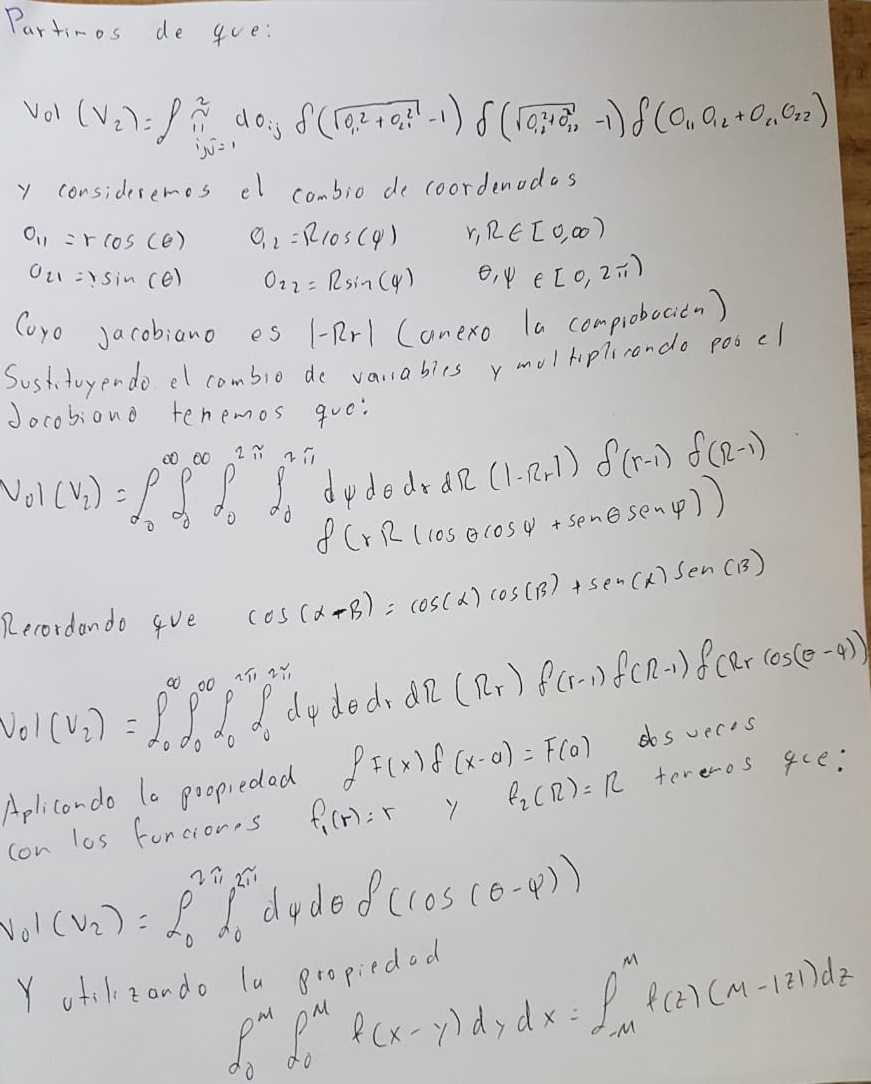 Partimos de que:
Vol (V₂) = ∫ ∏²ᵢⱼ₌₁ dOᵢⱼ δ(√(O₁₁² + O₂₁²) -1) δ(√(O₁₂² + O₂₂²) -1) δ(O₁₁ O₁₂ + O₂₁ O₂₂)
y consideremos el cambio de coordenadas
O₁₁ = r cos (θ) O₁₂ = R cos (φ) r, R ∈ [0, ∞)
O₂₁ = r sin (θ) O₂₂ = R sin (φ) θ, φ ∈ [0, 2π)
Cuyo jacobiano es |-Rr| (anexo la comprobación)
Sustituyendo el cambio de variables y multiplicando por el
Jacobiano tenemos que:
Vol (V₂) = ∫₀^∞ ∫₀^∞ ∫₀^2π ∫₀^2π dφ dθ dr dR (|-Rr|) δ(r-1) δ(R-1)
δ(r R (cos θ cos φ + sen θ sen φ))
Recordando que cos (α - β) = cos(α) cos(β) + sen(α) sen(β)
Vol (V₂) = ∫₀^∞ ∫₀^∞ ∫₀^2π ∫₀^2π dφ dθ dr dR (Rr) δ(r-1) δ(R-1) δ(Rr cos(θ - φ))
Aplicando la propiedad ∫ F(x) δ(x-a) = F(a) dos veces
con las funciones f₁(r) = r y f₂(R) = R tenemos que:
Vol (V₂) = ∫₀^2π ∫₀^2π dφ dθ δ(cos (θ - φ))
Y utilizando la propiedad
∫₀^M ∫₀^M f(x - y) dy dx = ∫₋M^M f(z) (M - |z|) dz